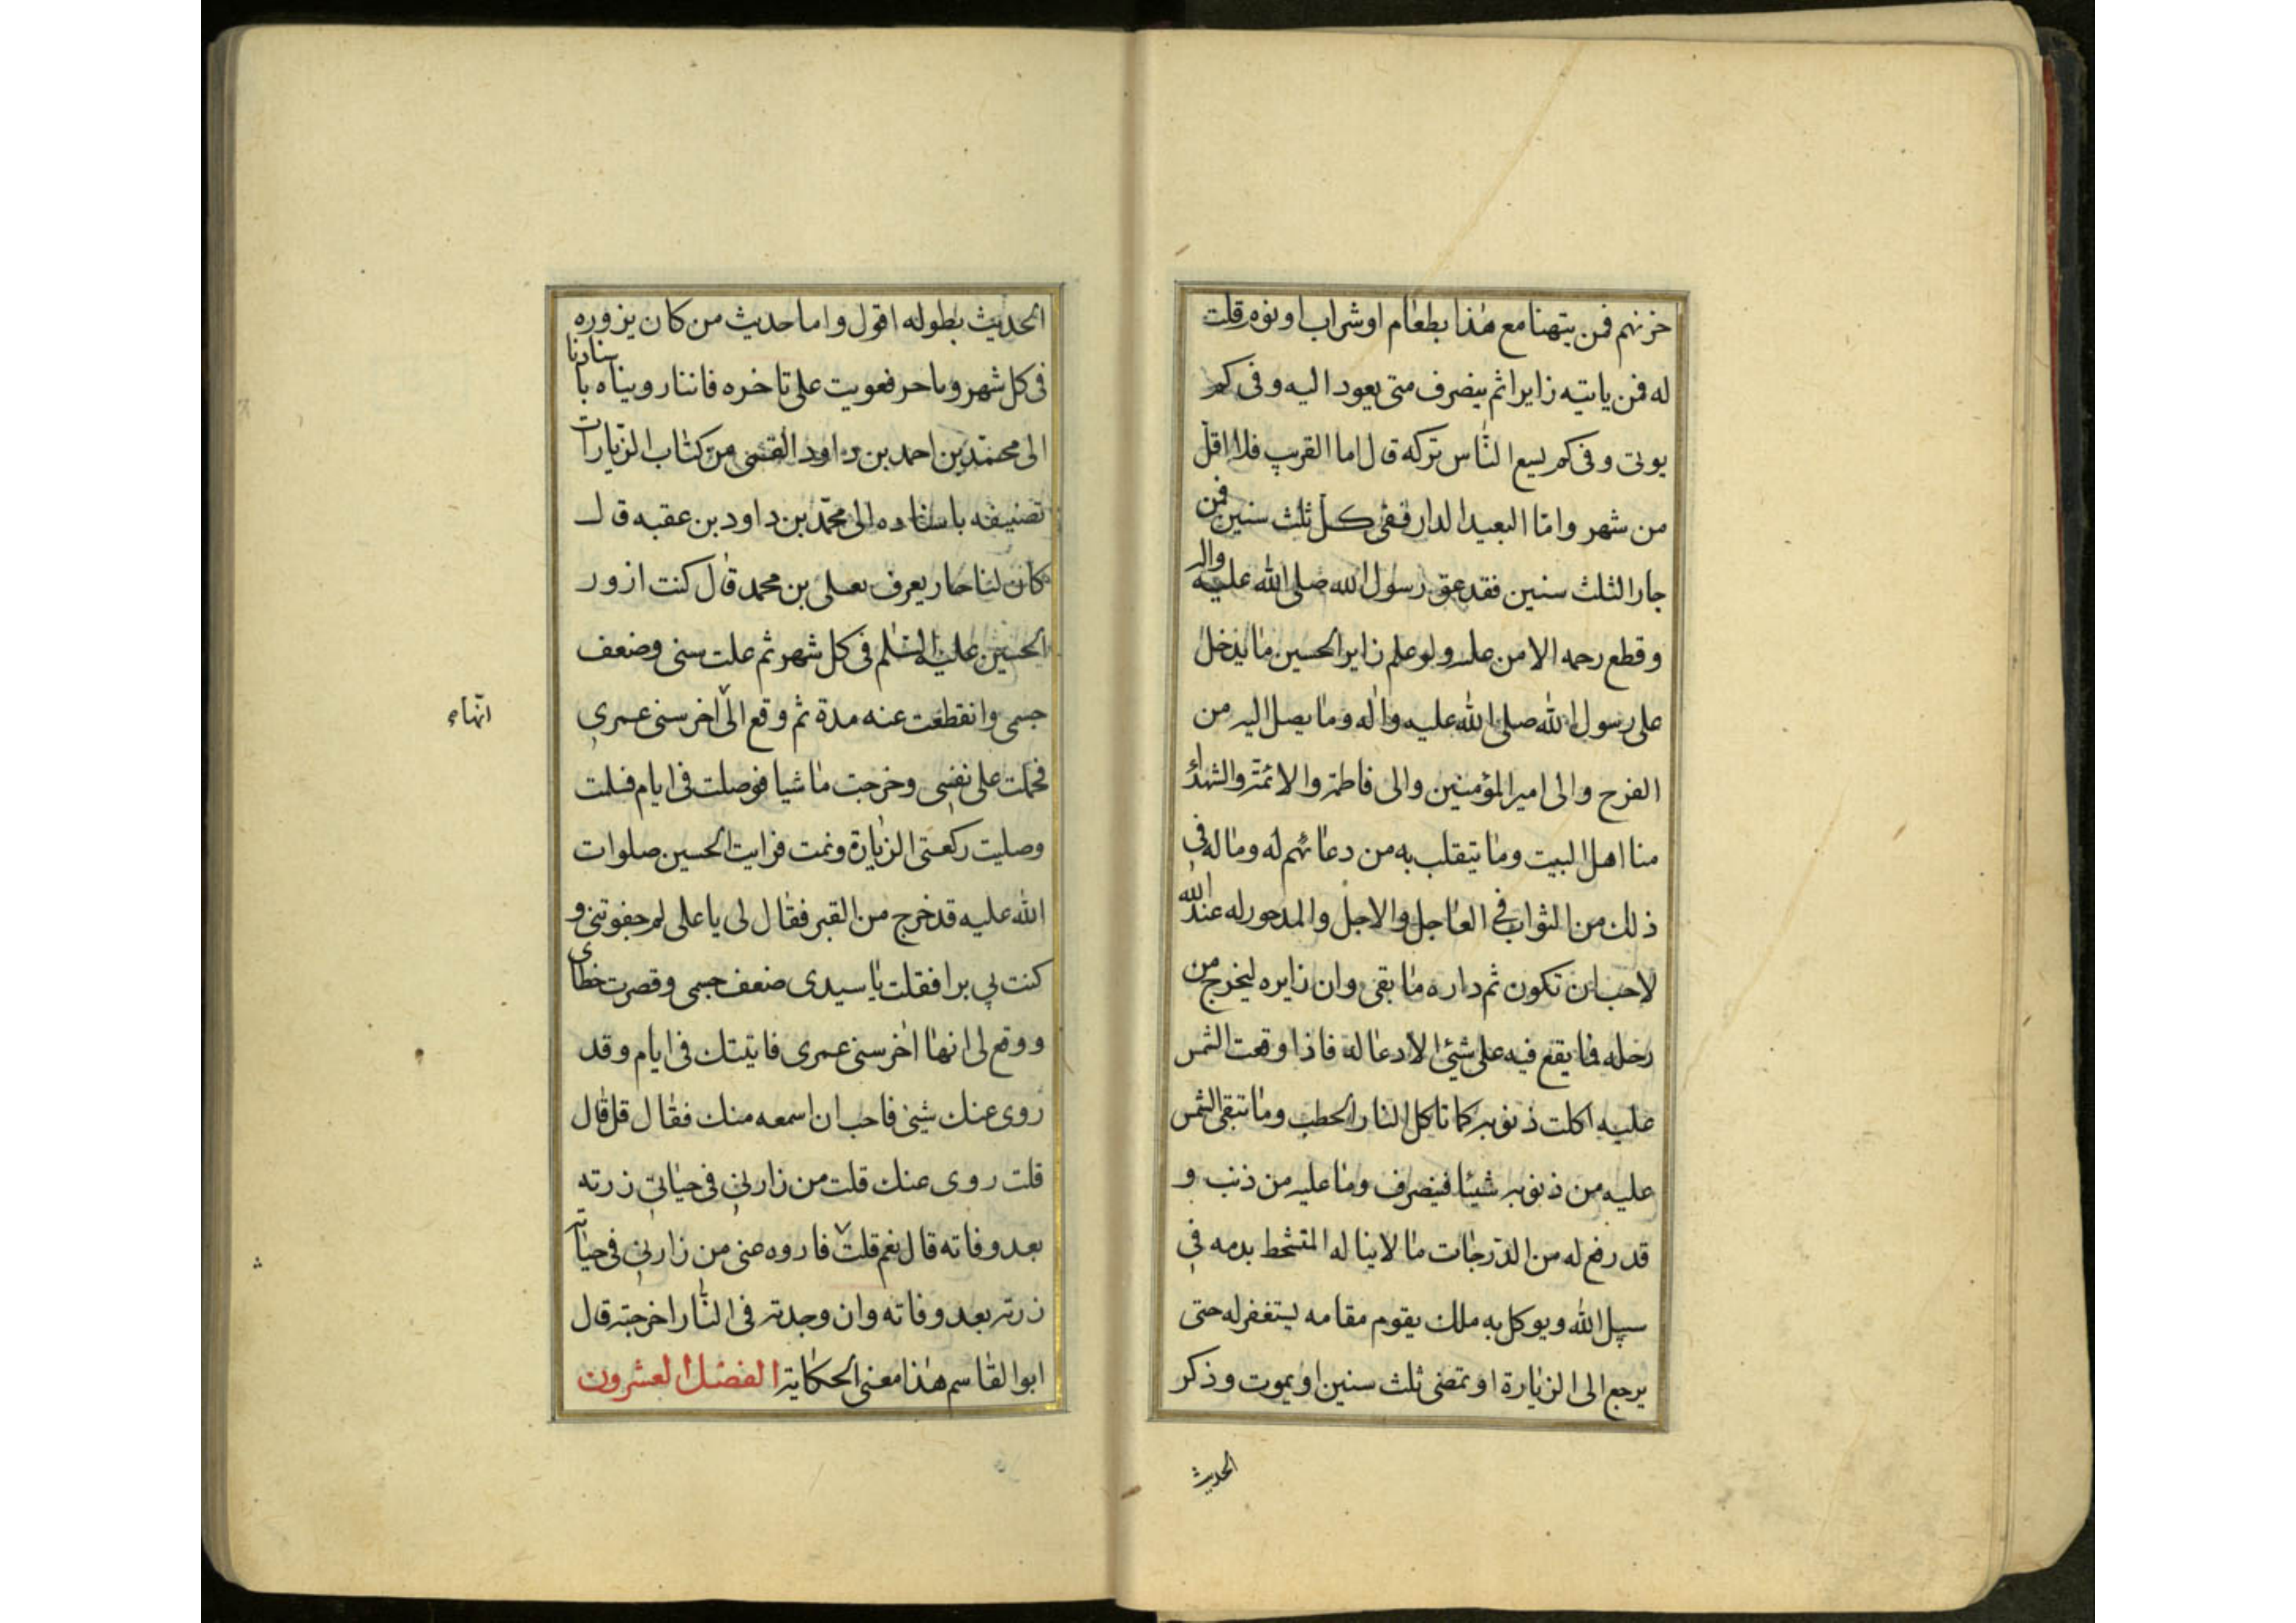 حزنهم فمن يتهنا مع هذا بطعام او شراب او نوم قلت
له فمن ياتيه زايرا ثم ينصرف متى يعود اليه و فى كم
يوتى و فى كم يسع الناس تركه قال اما القريب فلا اقل
من شهر و امّا البعيد الدار ففى كلّ ثلث سنين فمن
جاز الثلث سنين فقد عق رسول الله صلى الله عليه واله
و قطع رحمه الا من عله ولو علم زاير الحسين ما يدخل
على رسول الله صلى الله عليه و اله وما يصل اليه من
الفرح و الى امير المؤمنين والى فاطمة والائمّة والشهداء
منا اهل البيت وما يتقلب به من دعائهم له وما له فى
ذلك من الثواب فى العاجل والاجل والمدخور له عند الله
لاحب ان تكون ثم داره ما بقى وان زايره ليخرج من
رحله فما يقع فيه على شيئ الا دعا له فاذا وقعت الشمس
عليه اكلت ذنوبه كما تاكل النار الحطب وما تبقى الشمس
عليه من ذنوبه شيئا فينصرف وما عليه من ذنب و
قد رفع له من الدّرجات ما لا يناله المتشحط بدمه فى
سبيل الله ويوكل به ملك يقوم مقامه يستغفر له حتى
يرجع الى الزيارة او تمضى ثلث سنين او يموت و ذكر
الحديث
الحديث بطوله اقول و اما حديث من كان يزوره
فى كل شهر و تاخر فعويت على تاخره فاننا رويناه باسنادنا
الى محمّد بن احمد بن داود القمى من كتاب الزيارات
تصنيفه باسناده الى محمّد بن داود بن عقبه قال
كان لنا جار يعرف بعلى بن محمد قال كنت ازور
الحسين عليه السّلم فى كل شهر ثم علت سنى وضعف
جسمى وانقطعت عنه مدة ثم وقع الىّ اخر سنى عمرى
انّهاء
فحملت على نفسى وخرجت ماشيا فوصلت فى ايام فسلمت
وصليت ركعتى الزيارة ونمت فرايت الحسين صلوات
الله عليه قد خرج من القبر فقال لى يا على لم جفوتنى و
كنت بى برا فقلت يا سيدى ضعف جسمى وقصرت خطاى
و وقع لى انها اخر سنى عمرى فاتيتك فى ايام و قد
روى عنك شيئ فاحب ان اسمعه منك فقال قل قال
قلت روى عنك قلت من زارنى فى حياتى زرته
بعد وفاته قال نعم قلت فاروه عنى من زارنى فى حياته
زرته بعد وفاته وان وجدته فى النّار اخرجته قال
ابو القاسم هذا معنى الحكاية الفصل العشرون